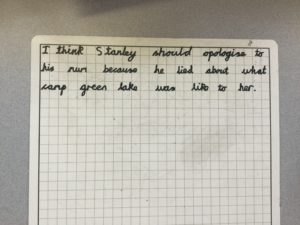 I think Stanley should opologise to
his mum because he lied about what
camp green lake was like to her.